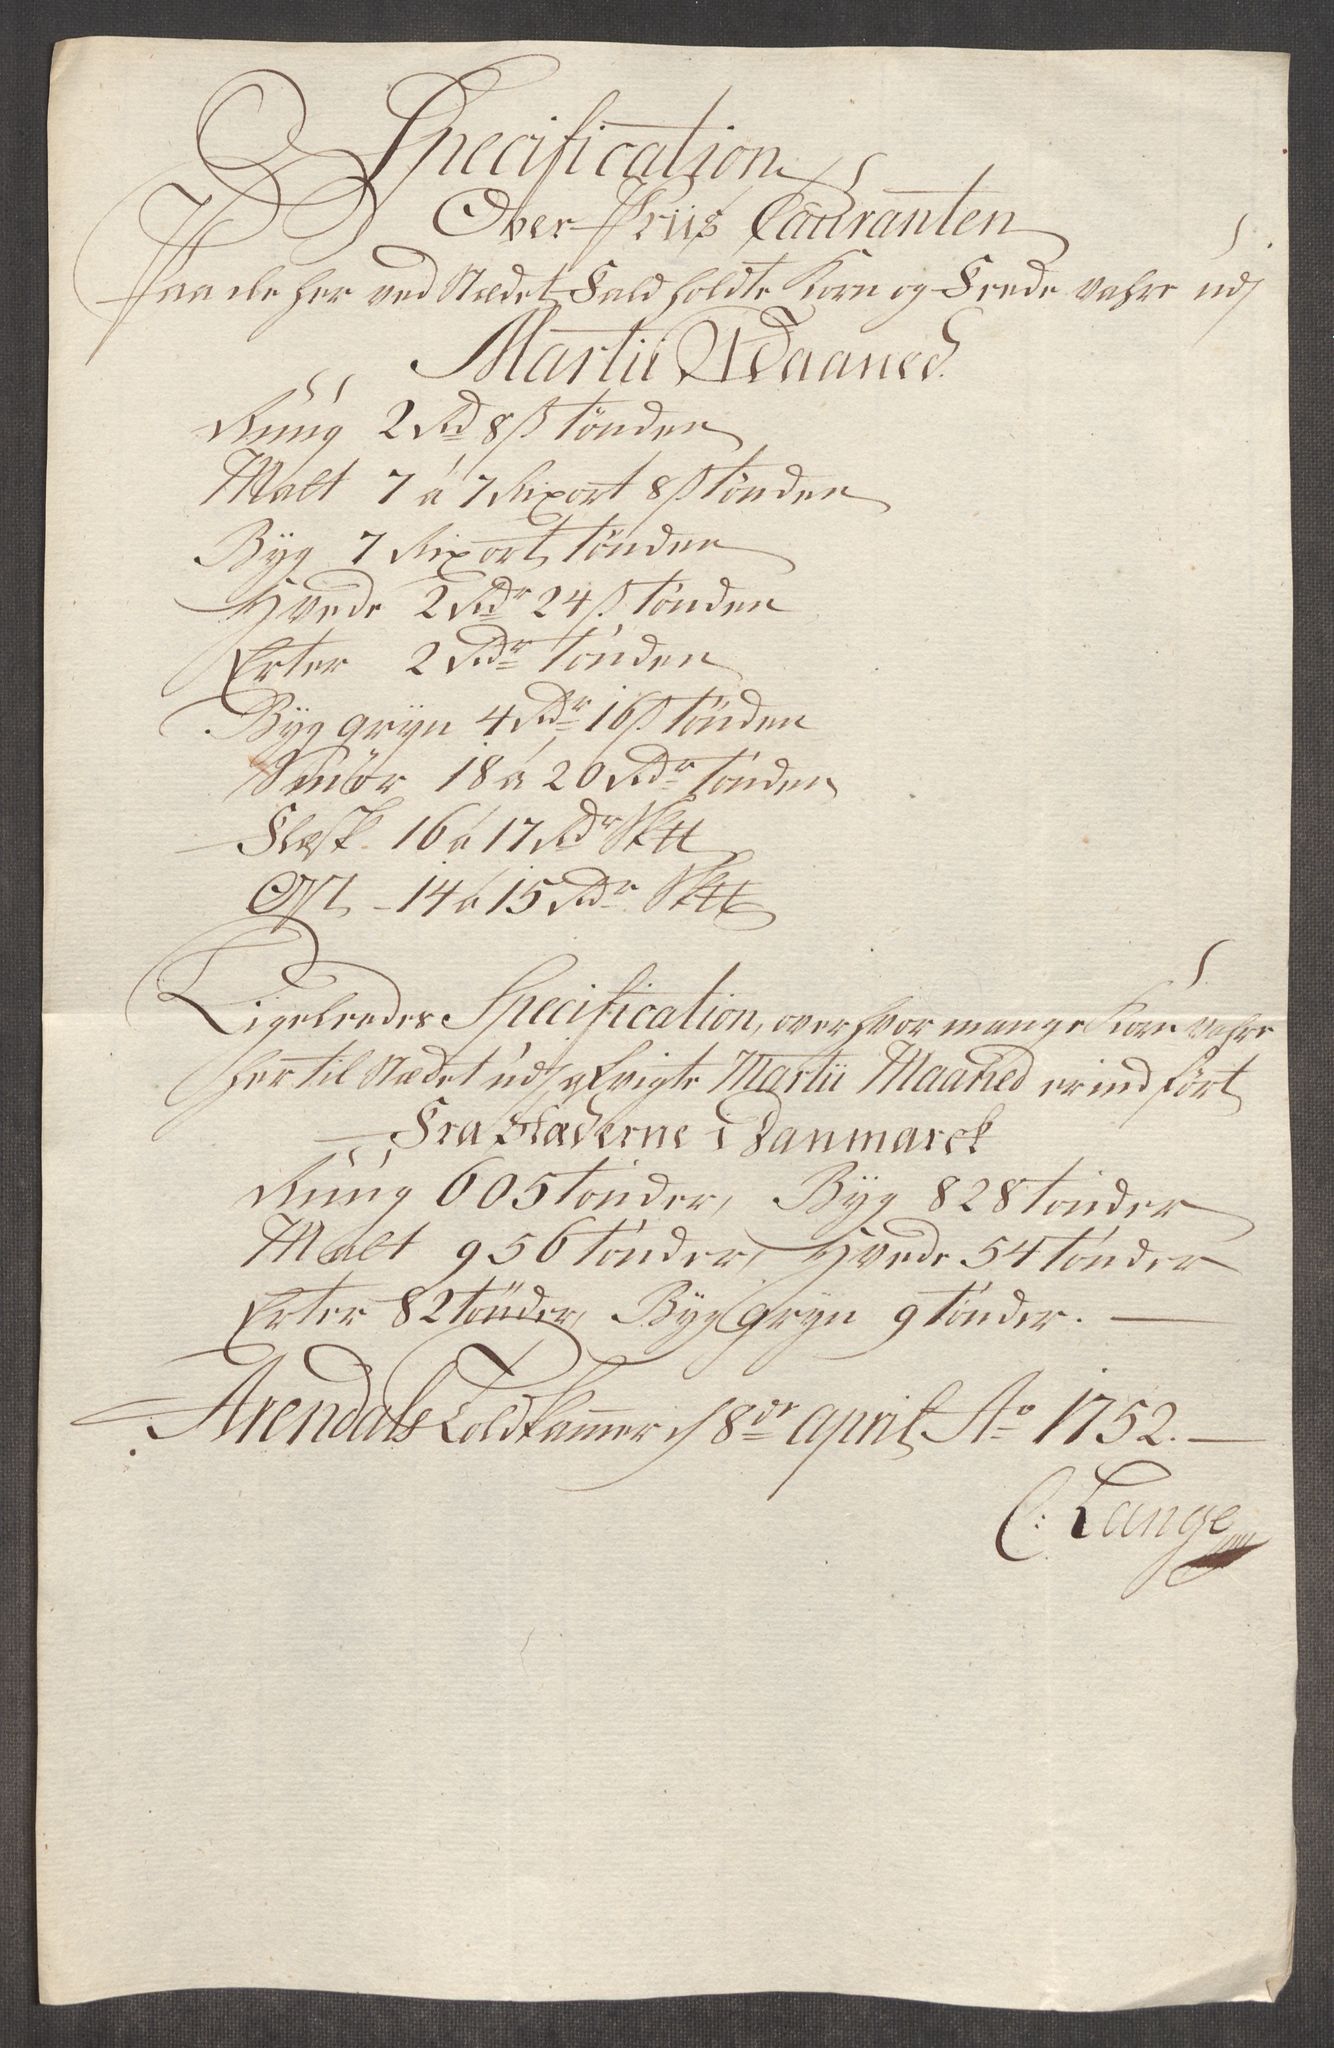 Specification
Over Priis Couranten
Paa de her ved Stædet Fald holdte Korn og Feede vahre udj
Martii Maaned
Rúúg 2 Rd 8 ß tønden
Malt 7 à 7 Rixort 8 ß tønden
Byg 7 Rixort tønden
Hvede 2 Rdr 24 ß tønden
Erter 2 Rdr tønden
Byg gryn 4 Rdr 16 ß tønden
Smør 18 à 20 Rdr tønden
Flæsk 16 à 17 Rdr Sk℔
Ost 14 à 15 Rdr Sk℔
Ligeleedes Specification, over hvor mange Korn vahre
her til Stædet udj Martii Maaned er ind ført
Fra Stæderne i Danmarck
Rúúg 605 tønder, Byg 828 tønder
Malt 956 tønder, Hvede 54 tønder
Erter 82 tønder, Byg gryn 9 tønder. —
Arendals Toldkammer d 8de April Ao 1752. —
C: Lange